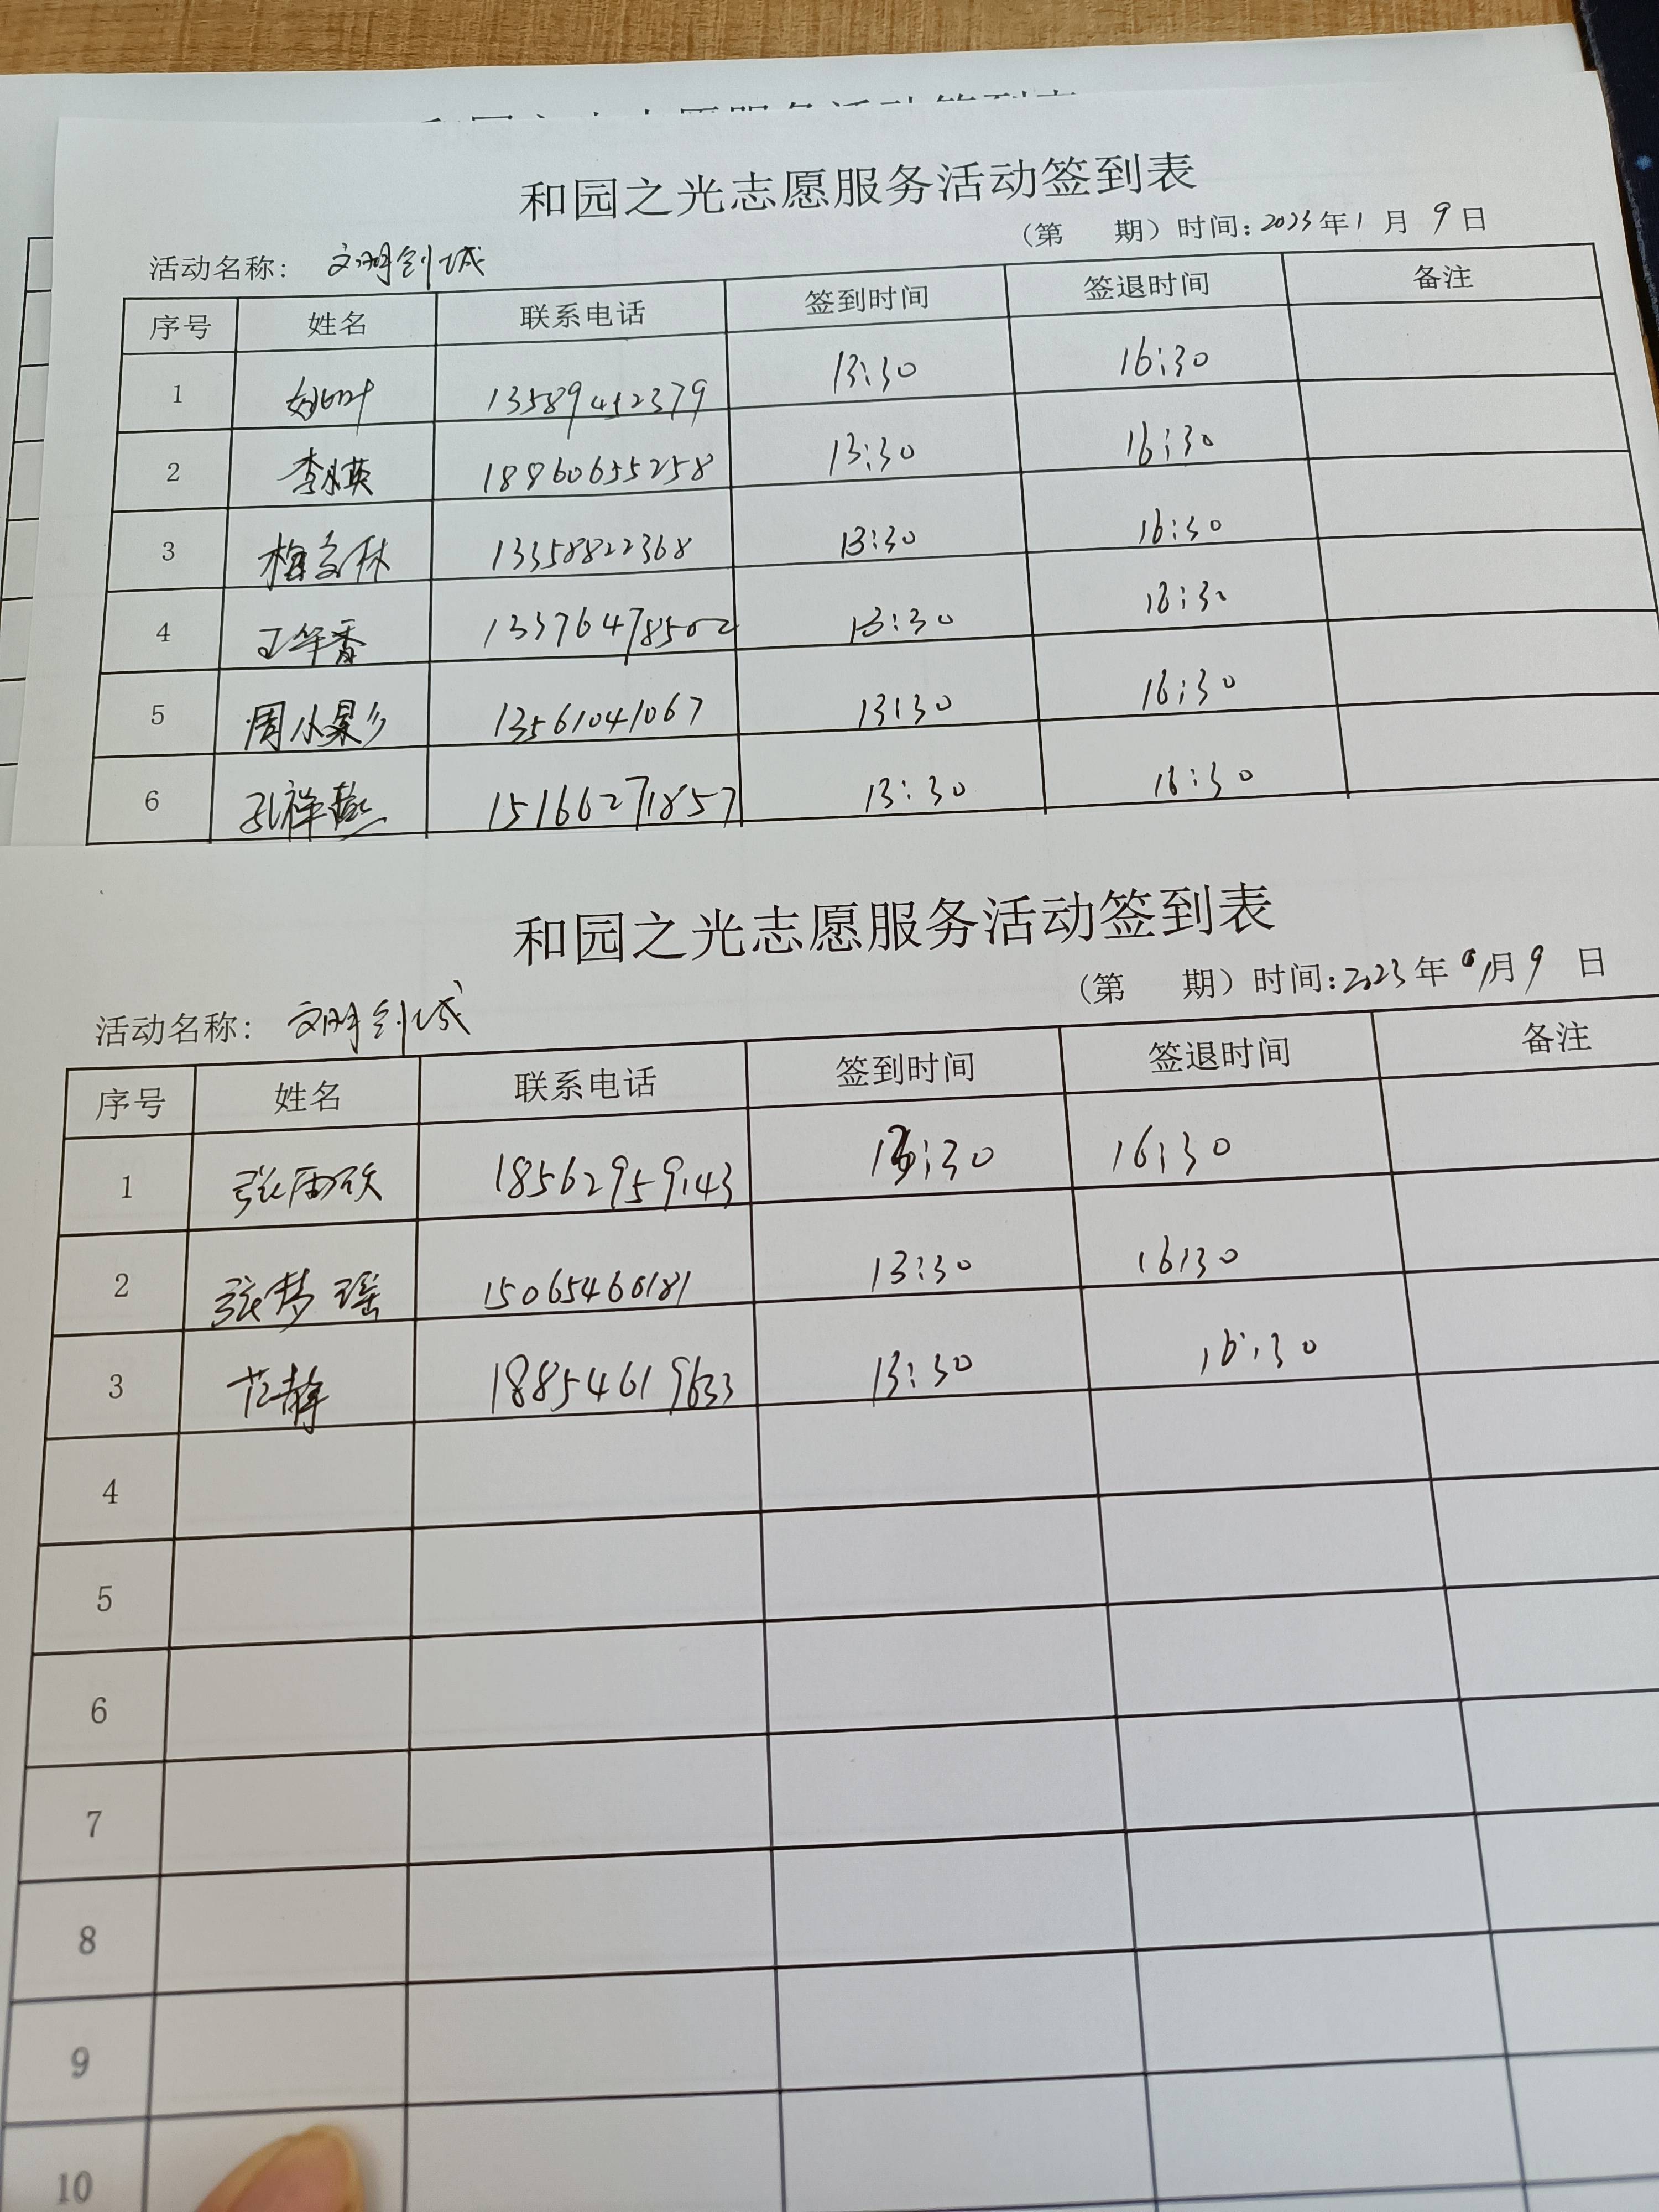 和园之光志愿服务活动签到表
活动名称: 文明创城 (第 期) 时间: 2023年1月9日
序号 姓名 联系电话 签到时间 签退时间 备注
1 姚叶 13589452379 13:30 16:30
2 李永英 18860655258 13:30 16:30
3 13358822368 13:30 16:30
4 王华香 13376478502 13:30 16:30
5 周小景 13561041067 13:30 16:30
6 孔祥燕 15166271857 13:30 16:30
和园之光志愿服务活动签到表
活动名称: 文明创城 (第 期) 时间: 2023年1月9日
序号 姓名 联系电话 签到时间 签退时间 备注
1 张雨欣 18562959143 13:30 16:30
2 张梦瑶 15065460181 13:30 16:30
3 范静 18854619633 13:30 16:30
4
5
6
7
8
9
10